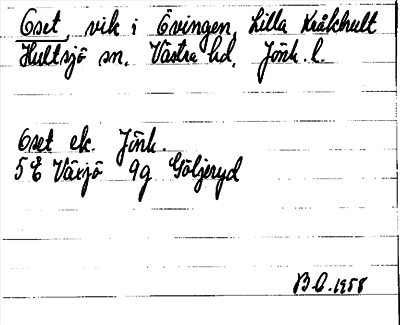 Oset, vik i Övingen, Lilla Kråkhult
Hultsjö sn. Västra hd. Jönk. l.
Oset ek. Jönk.
5 E Växjö 9g Göljeryd
B.C. 1958